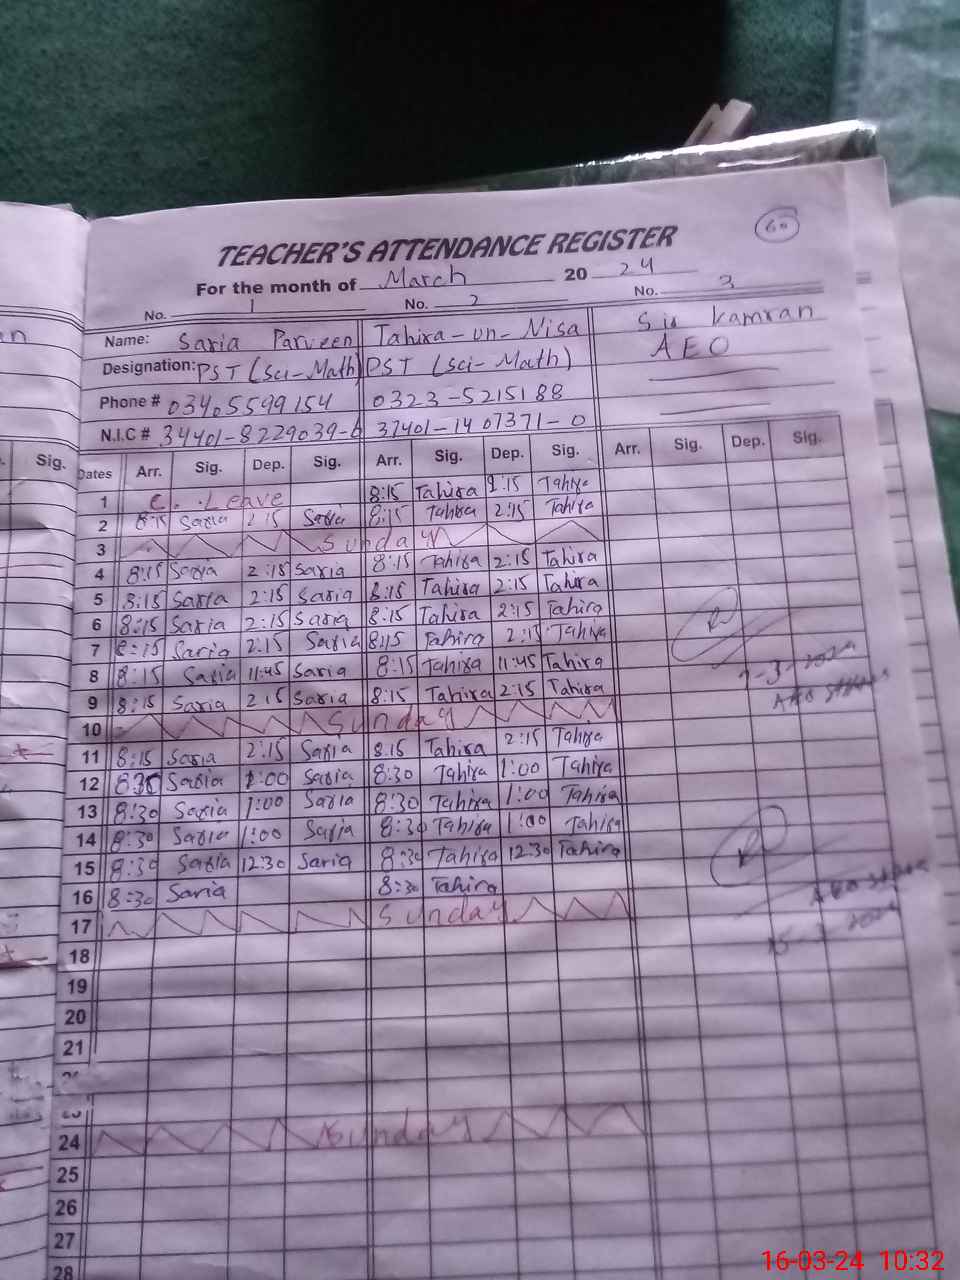 60
TEACHER'S ATTENDANCE REGISTER
For the month of March 2024
No. 1 No. 2 No. 3
Name: Saria Parveen Tahira-un-Nisa Sir Kamran
Designation: PST (Sci-Math) PST (Sci-Math) AEO
Phone # 03405599154 0323-5215188
N.I.C # 34401-8229039-6 37401-1407371-0
Sig. Dates Arr. Sig. Dep. Sig. Arr. Sig. Dep. Sig. Arr. Sig. Dep. Sig.
1 C. Leave 8:15 Tahira 2:15 Tahira
2 8:15 Saria 2:15 Saria 8:15 Tahira 2:15 Tahira
3 Sunday
4 8:15 Saria 2:15 Saria 8:15 Tahira 2:15 Tahira
5 8:15 Saria 2:15 Saria 8:15 Tahira 2:15 Tahira
6 8:15 Saria 2:15 Saria 8:15 Tahira 2:15 Tahira
7 8:15 Saria 2:15 Saria 8:15 Tahira 2:15 Tahira
8 8:15 Saria 11:45 Saria 8:15 Tahira 11:45 Tahira
9 8:15 Saria 2:15 Saria 8:15 Tahira 2:15 Tahira
10 Sunday
11 8:15 Saria 2:15 Saria 8:15 Tahira 2:15 Tahira
12 8:30 Saria 1:00 Saria 8:30 Tahira 1:00 Tahira
13 8:30 Saria 1:00 Saria 8:30 Tahira 1:00 Tahira
14 8:30 Saria 1:00 Saria 8:30 Tahira 1:00 Tahira
15 8:30 Saria 12:30 Saria 8:30 Tahira 12:30 Tahira
16 8:30 Saria 8:30 Tahira
17 Sunday
18
19
20
21
24 Sunday
25
26
27
28
16-03-24 10:32